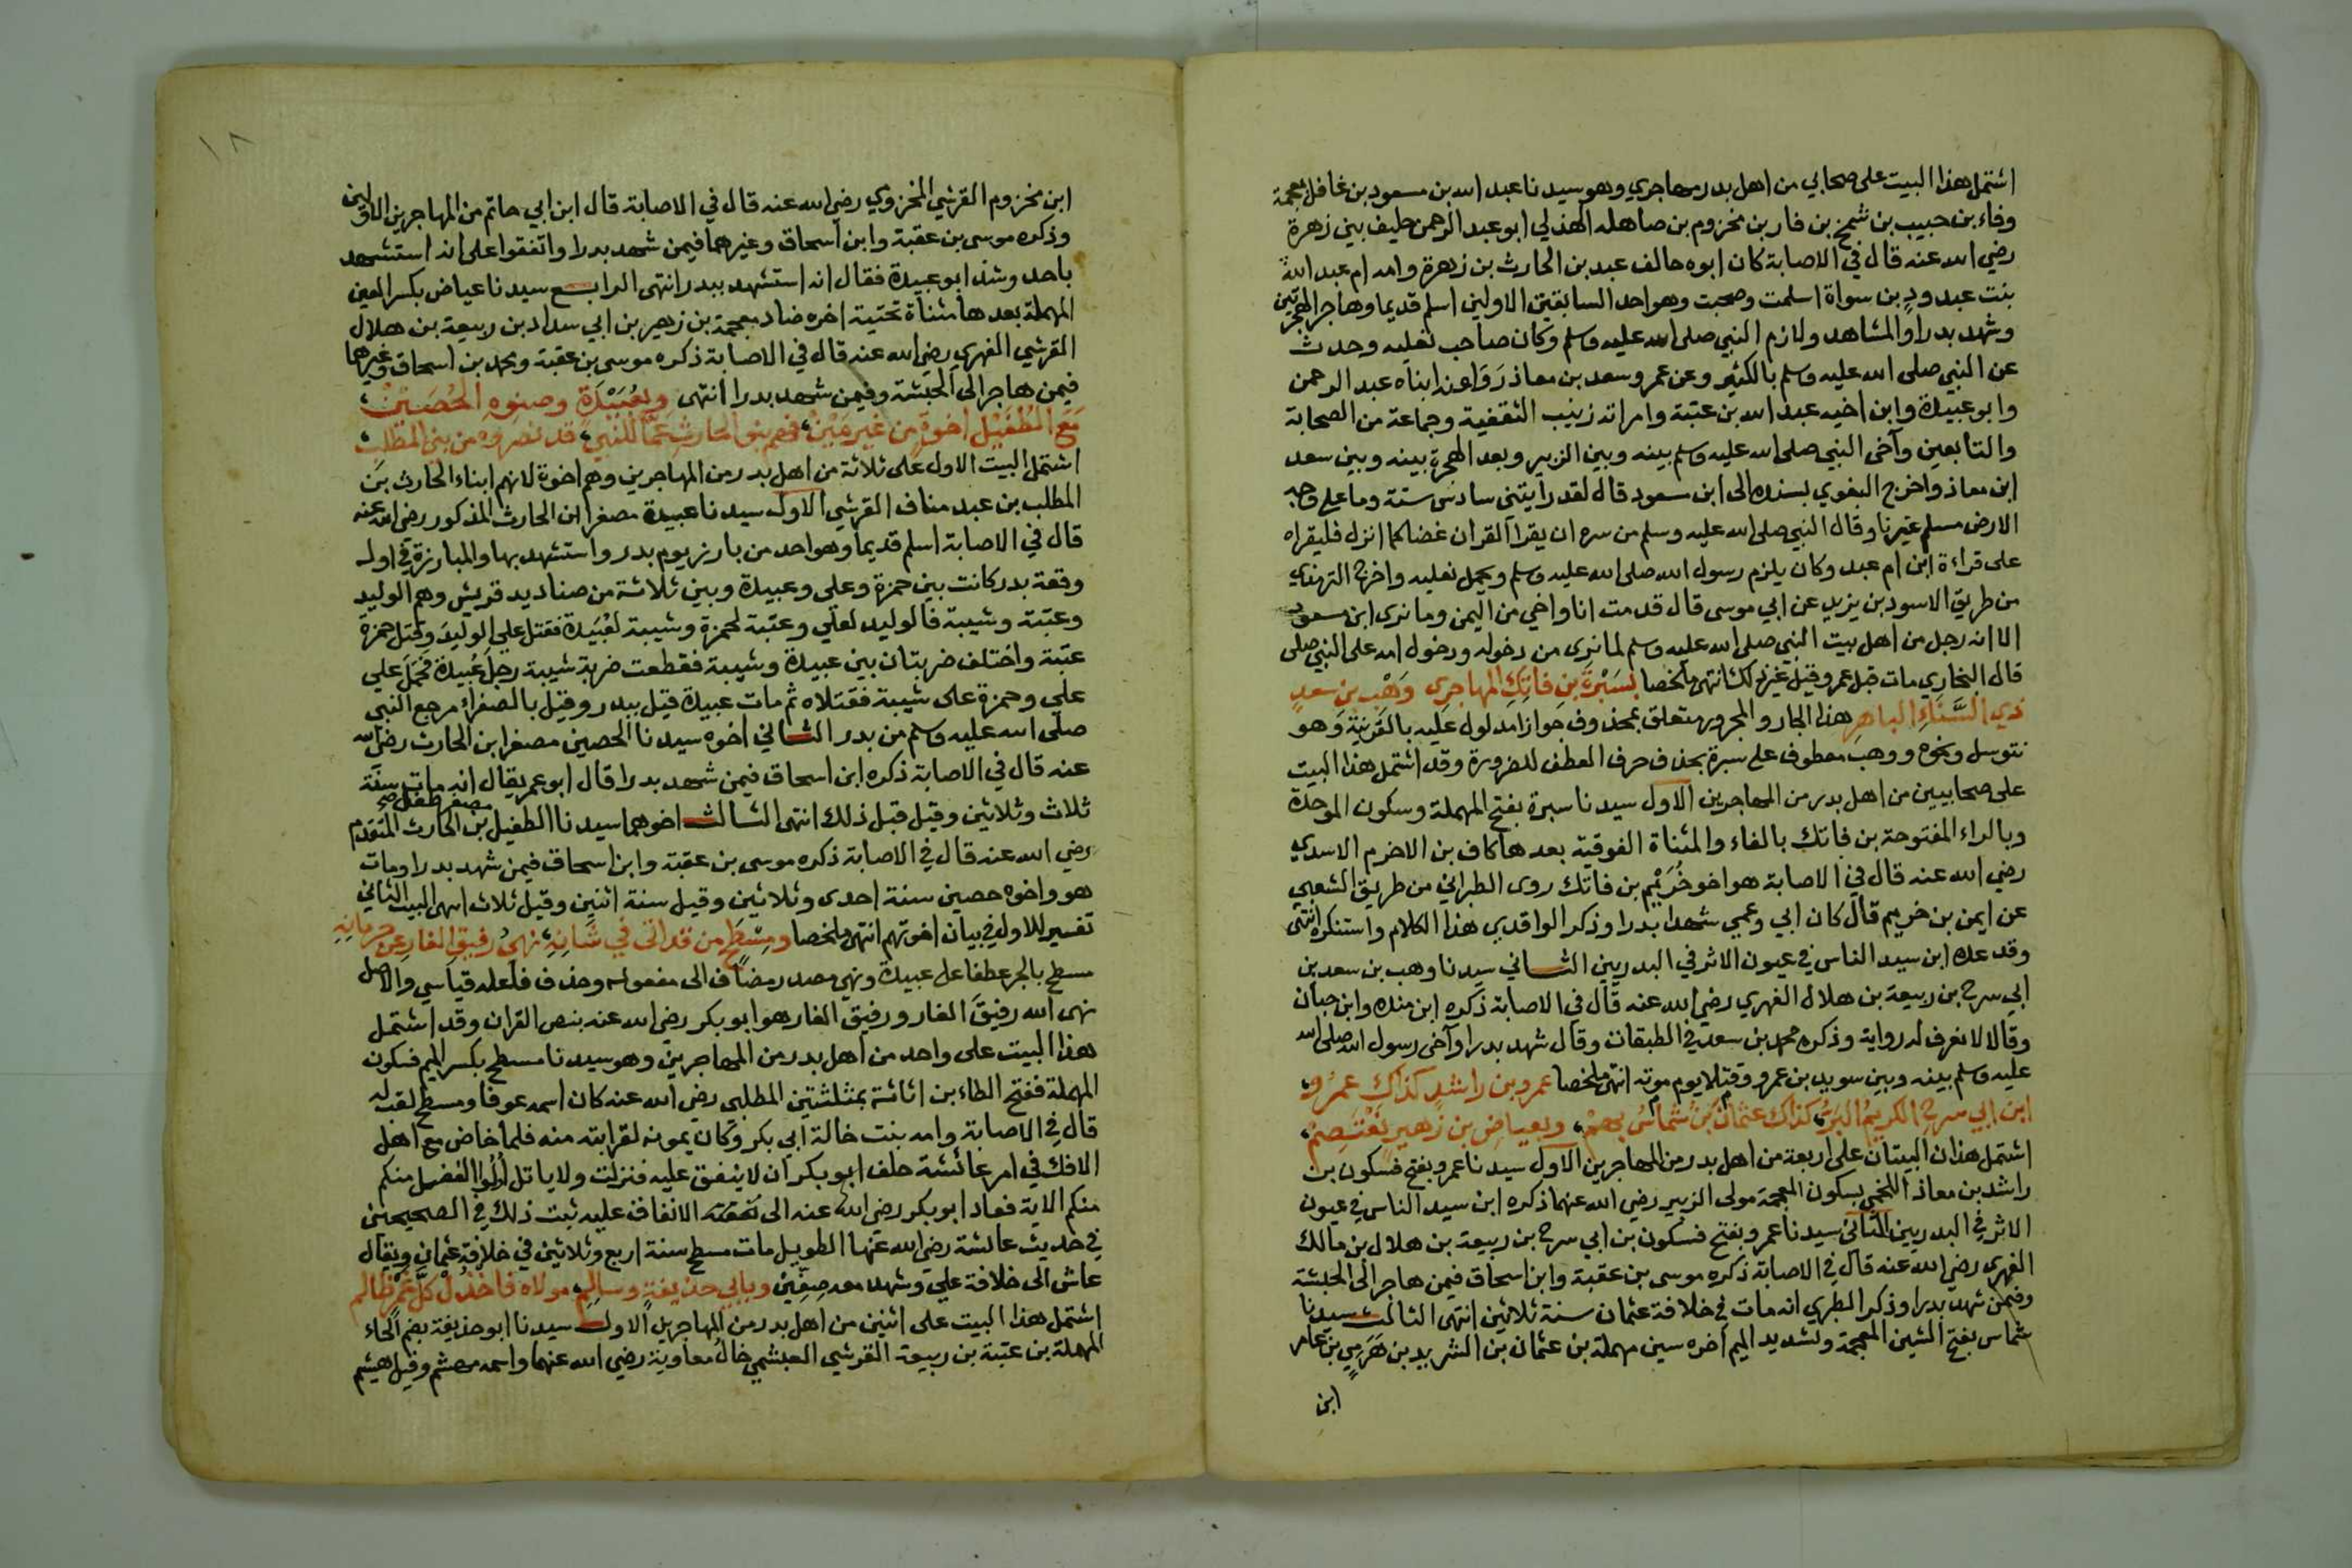 اشتمل هذا البيت على صحابي من اهل بدر مهاجري وهو سيدنا عبد الله بن مسعود بن غافل بمعجمة
وفاء بن حبيب بن شمخ بن فار بن مخزوم بن صاهله الهذلي ابو عبد الرحمن حليف بني زهرة
رضي الله عنه قال في الاصابة كان ابوه حالف عبد بن الحارث بن زهرة وامه ام عبد الله
بنت عبد ود بن سواة اسلمت وصحبت وهو احد السابقين الاولين اسلم قديما وهاجر الهجرتين
وشهد بدرا والمشاهد ولازم النبي صلى الله عليه وسلم وكان صاحب نعليه وحدث
عن النبي صلى الله عليه وسلم بالكثير وعن عمرو سعد بن معاذ روا عنه ابناه عبد الرحمن
وابو عبيدة وابن اخيه عبد الله بن عتبة وامراته زينب الثقفية وجماعة من الصحابة
والتابعين وآخى النبي صلى الله عليه وسلم بينه وبين الزبير وبعد الهجرة بينه وبين سعد
ابن معاذ واخرج البغوي بسنده الى ابن مسعود قال لقد رايتني سادس ستة وما على وجه
الارض مسلم غيرنا وقال النبي صلى الله عليه وسلم من سره ان يقرا القران غضا كما انزل فليقراه
على قراءة ابن ام عبد وكان يلزم رسول الله صلى الله عليه وسلم ويحمل نعليه واخرج الترمذي
من طريق الاسود بن يزيد عن ابي موسى قال قدمت انا واخي من اليمن وما نرى ابن مسعود
الا انه رجل من اهل بيت النبي صلى الله عليه وسلم لما نرى من دخوله ودخول امه على النبي صلى
قال البخاري مات قبل عمر وقيل غير ذلك انتهى ملخصا بسَبْرةَ بنِ فاتِكِ المهاجري وَهْب بنِ سعدٍ
ذي السَّنَاءِ الباهرِ هذا الجار والمجرور متعلق بمحذوف جوازا مدلول عليه بالقرينة وهو
نتوسل ونحوه ووهب معطوف على سبرة بحذف حرف العطف للضرورة وقد اشتمل هذا البيت
على صحابيين من اهل بدر من المهاجرين الاول سيدنا سبرة بفتح المهملة وسكون الموحدة
وبالراء المفتوحة بن فاتك بالفاء والمثناة الفوقية بعدها كاف بن الاخرم الاسدي
رضي الله عنه قال في الاصابة هو اخو خُرَيْم بن فاتك روى الطبراني من طريق الشعبي
عن ايمن بن خريم قال كان ابي وعمي شهدا بدرا وذكر الواقدي هذا الكلام واستنكره انتهى
وقد عده ابن سيد الناس في عيون الاثر في البدريين الثاني سيدنا وهب بن سعد بن
ابي سرح بن ربيعة بن هلال الفهري رضي الله عنه قال في الاصابة ذكره ابن منده وابن حبان
وقالا لا نعرف له رواية وذكره محمد بن سعد في الطبقات وقال شهد بدرا وآخى رسول الله صلى الله
عليه وسلم بينه وبين سويد بن عمرو وقتلا يوم موته انتهى ملخصا عمرو بن راشدٍ كذاك عمرُو
ابن ابي سرح الكريمُ البَرُّ كذاك عثمان بن شماس بهم وبعياض بن زهير نعتصم
اشتمل هذان البيتان على اربعة من اهل بدر من المهاجرين الاول سيدنا عمرو بفتح فسكون بن
راشد بن معاذ اللخمي بسكون المعجمة مولى الزبير رضي الله عنهما ذكره ابن سيد الناس في عيون
الاثر في البدريين الثاني سيدنا عمرو بفتح فسكون بن ابي سرح بن ربيعة بن هلال بن مالك
الفهري رضي الله عنه قال في الاصابة ذكره موسى بن عقبة وابن اسحاق فيمن هاجر الى الحبشة
وفيمن شهد بدرا وذكر الطبري انه مات في خلافة عثمان سنة ثلاثين انتهى الثالث سيدنا
شماس بفتح الشين المعجمة وتشديد الميم اخره سين مهملة بن عثمان بن الشريد بن هَرَمِيٍ بن عامر
ابن
١٨
ابن مخزوم القرشي المخزومي رضي الله عنه قال في الاصابة قال ابن ابي حاتم من المهاجرين الاولين
وذكره موسى بن عقبة وابن اسحاق وغيرهما فيمن شهد بدرا واتفقوا على انه استشهد
باحد وشذ ابو عبيدة فقال انه استشهد ببدر انتهى الرابع سيدنا عياض بكسر العين
المهملة بعدها مثناة تحتية اخره ضاد معجمة بن زهير بن ابي شداد بن ربيعة بن هلال
القرشي الفهري رضي الله عنه قال في الاصابة ذكره موسى بن عقبة ومحمد بن اسحاق وغيرهما
فيمن هاجر الى الحبشة وفيمن شهد بدرا انتهى وبعُبَيْدَةٍ وصنوِهِ الحُصَيْنْ
مَعَ الطُفَيْلِ اخوةٍ من غير مَيْنْ فهم بنو الحارث عمًّا للنبي قد نصروه من بني المطلب
اشتمل البيت الاول على ثلاثة من اهل بدر من المهاجرين وهم اخوة لانهم ابناء الحارث بن
المطلب بن عبد مناف القرشي الاول سيدنا عبيدة مصغرا بن الحارث المذكور رضي الله عنه
قال في الاصابة اسلم قديما وهو احد من بارز يوم بدر واستشهد بها والمبارزة في اول
وقعة بدر كانت بين حمزة وعلي وعبيدة وبين ثلاثة من صناديد قريش وهم الوليد
وعتبة وشيبة فالوليد لعلي وعتبة لحمزة وشيبة لعُبَيدة فقتل علي الوليدَ وقتل حمزة
عتبة واختلف ضربتان بين عبيدة وشيبة فقطعت ضربة شيبة رجلَ عُبيدة فحَمَلَ علي
علي وحمزة على شيبة فقتلاه ثم مات عبيدة قيل ببدر وقيل بالصفراء مرجع النبي
صلى الله عليه وسلم من بدر الثاني اخوه سيدنا الحصين مصغرا بن الحارث رضي الله
عنه قال في الاصابة ذكره ابن اسحاق فيمن شهد بدرا قال ابو عمر يقال انه مات سنة
ثلاث وثلاثين وقيل قبل ذلك انتهى الثالث اخوهما سيدنا الطفيل مصغر طفل صح بن الحارث المتقدم
رضي الله عنه قال في الاصابة ذكره موسى بن عقبة وابن اسحاق فيمن شهد بدرا ومات
هو واخوه حصين سنة احدى وثلاثين وقيل سنة اثنين وقيل ثلاث انتهى البيت الثاني
تفسير للاول في بيان اخوتهم انتهى ملخصا ومِسْطَحٍ من قد اتى في شَانِهِ نهيُ رفيقِ الغارِ عن حرمانِهِ
مسطح بالجر عطفا على عبيدة ونهي مصدر مضاف الى مفعوله وحذف فاعله قياسي والاصل
نهى الله رفيقَ الغار ورفيق الغار هو ابو بكر رضي الله عنه بنص القران وقد اشتمل
هذا البيت على واحد من اهل بدر من المهاجرين وهو سيدنا مسطح بكسر الميم فسكون
المهملة ففتح الطاء بن اثاثة بمثلثتين المطلبي رضي الله عنه كان اسمه عوفا ومسطح لقب له
قال في الاصابة وامه بنت خالة ابي بكر وكان يمونه لقرابته منه فلما خاض مع اهل
الافك في امر عائشة حلف ابو بكر ان لا ينفق عليه فنزلت ولا ياتل أولُوا الفضل منكم
منكم الاية فعاد ابو بكر رضي الله عنه الى نفقته الانفاق عليه ثبت ذلك في الصحيحين
في حديث عائشة رضي الله عنها الطويل مات مسطح سنة اربع وثلاثين في خلافة عثمان ويقال
عاش الى خلافة علي وشهد معه صِفِّين وبابي حذيفةٍ وسالمِ مولاه فاخذُلْ كلَّ غَمْرٍ ظالم
اشتمل هذا البيت على اثنين من اهل بدر من المهاجرين الاول سيدنا ابو حذيفة بضم الحاء
المهملة بن عتبة بن ربيعة القرشي العبشمي خالُ معاوية رضي الله عنهما واسمه مهشم وقيل هشيم